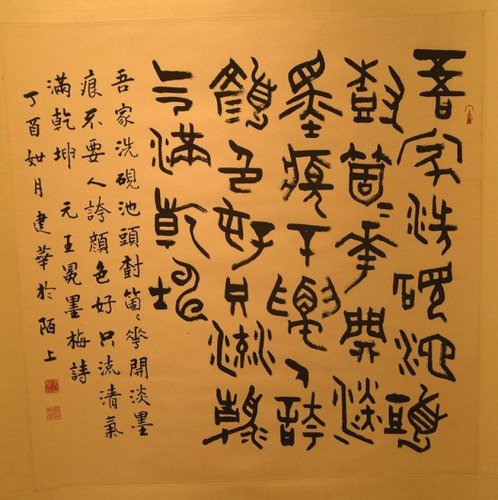 吾家洗硯池頭
尌箇〻華開淡
墨痕不要人誇
顏色好只流清
气滿乾坤
吾家洗硯池頭尌箇〻華開淡墨
痕不要人誇顏色好只流清氣
滿乾坤 元王冕墨梅詩
丁酉如月建華於陌上